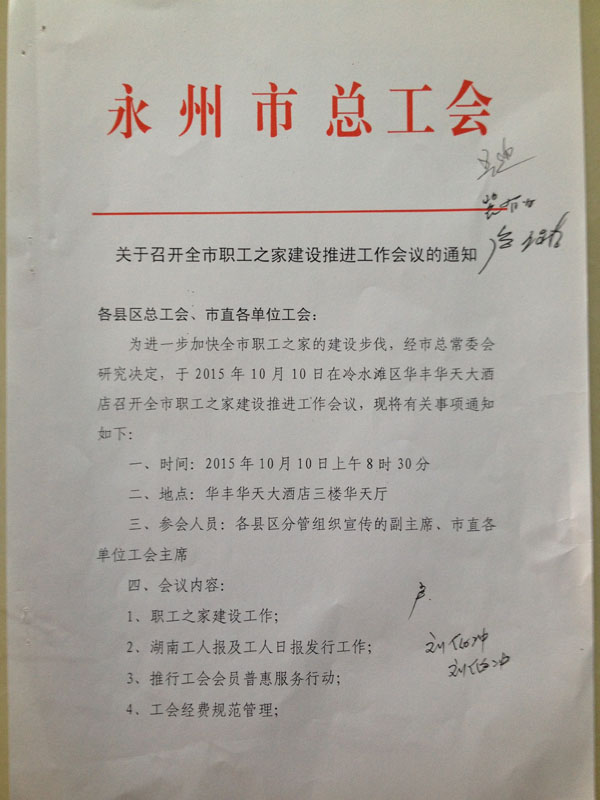 永州市总工会
关于召开全市职工之家建设推进工作会议的通知
各县区总工会、市直各单位工会：
为进一步加快全市职工之家的建设步伐，经市总常委会
研究决定，于 2015 年 10 月 10 日在冷水滩区华丰华天大酒
店召开全市职工之家建设推进工作会议，现将有关事项通知
如下：
一、时间：2015 年 10 月 10 日上午 8 时 30 分
二、地点：华丰华天大酒店三楼华天厅
三、参会人员：各县区分管组织宣传的副主席、市直各
单位工会主席
四、会议内容：
1、职工之家建设工作；
2、湖南工人报及工人日报发行工作；
3、推行工会会员普惠服务行动；
4、工会经费规范管理；